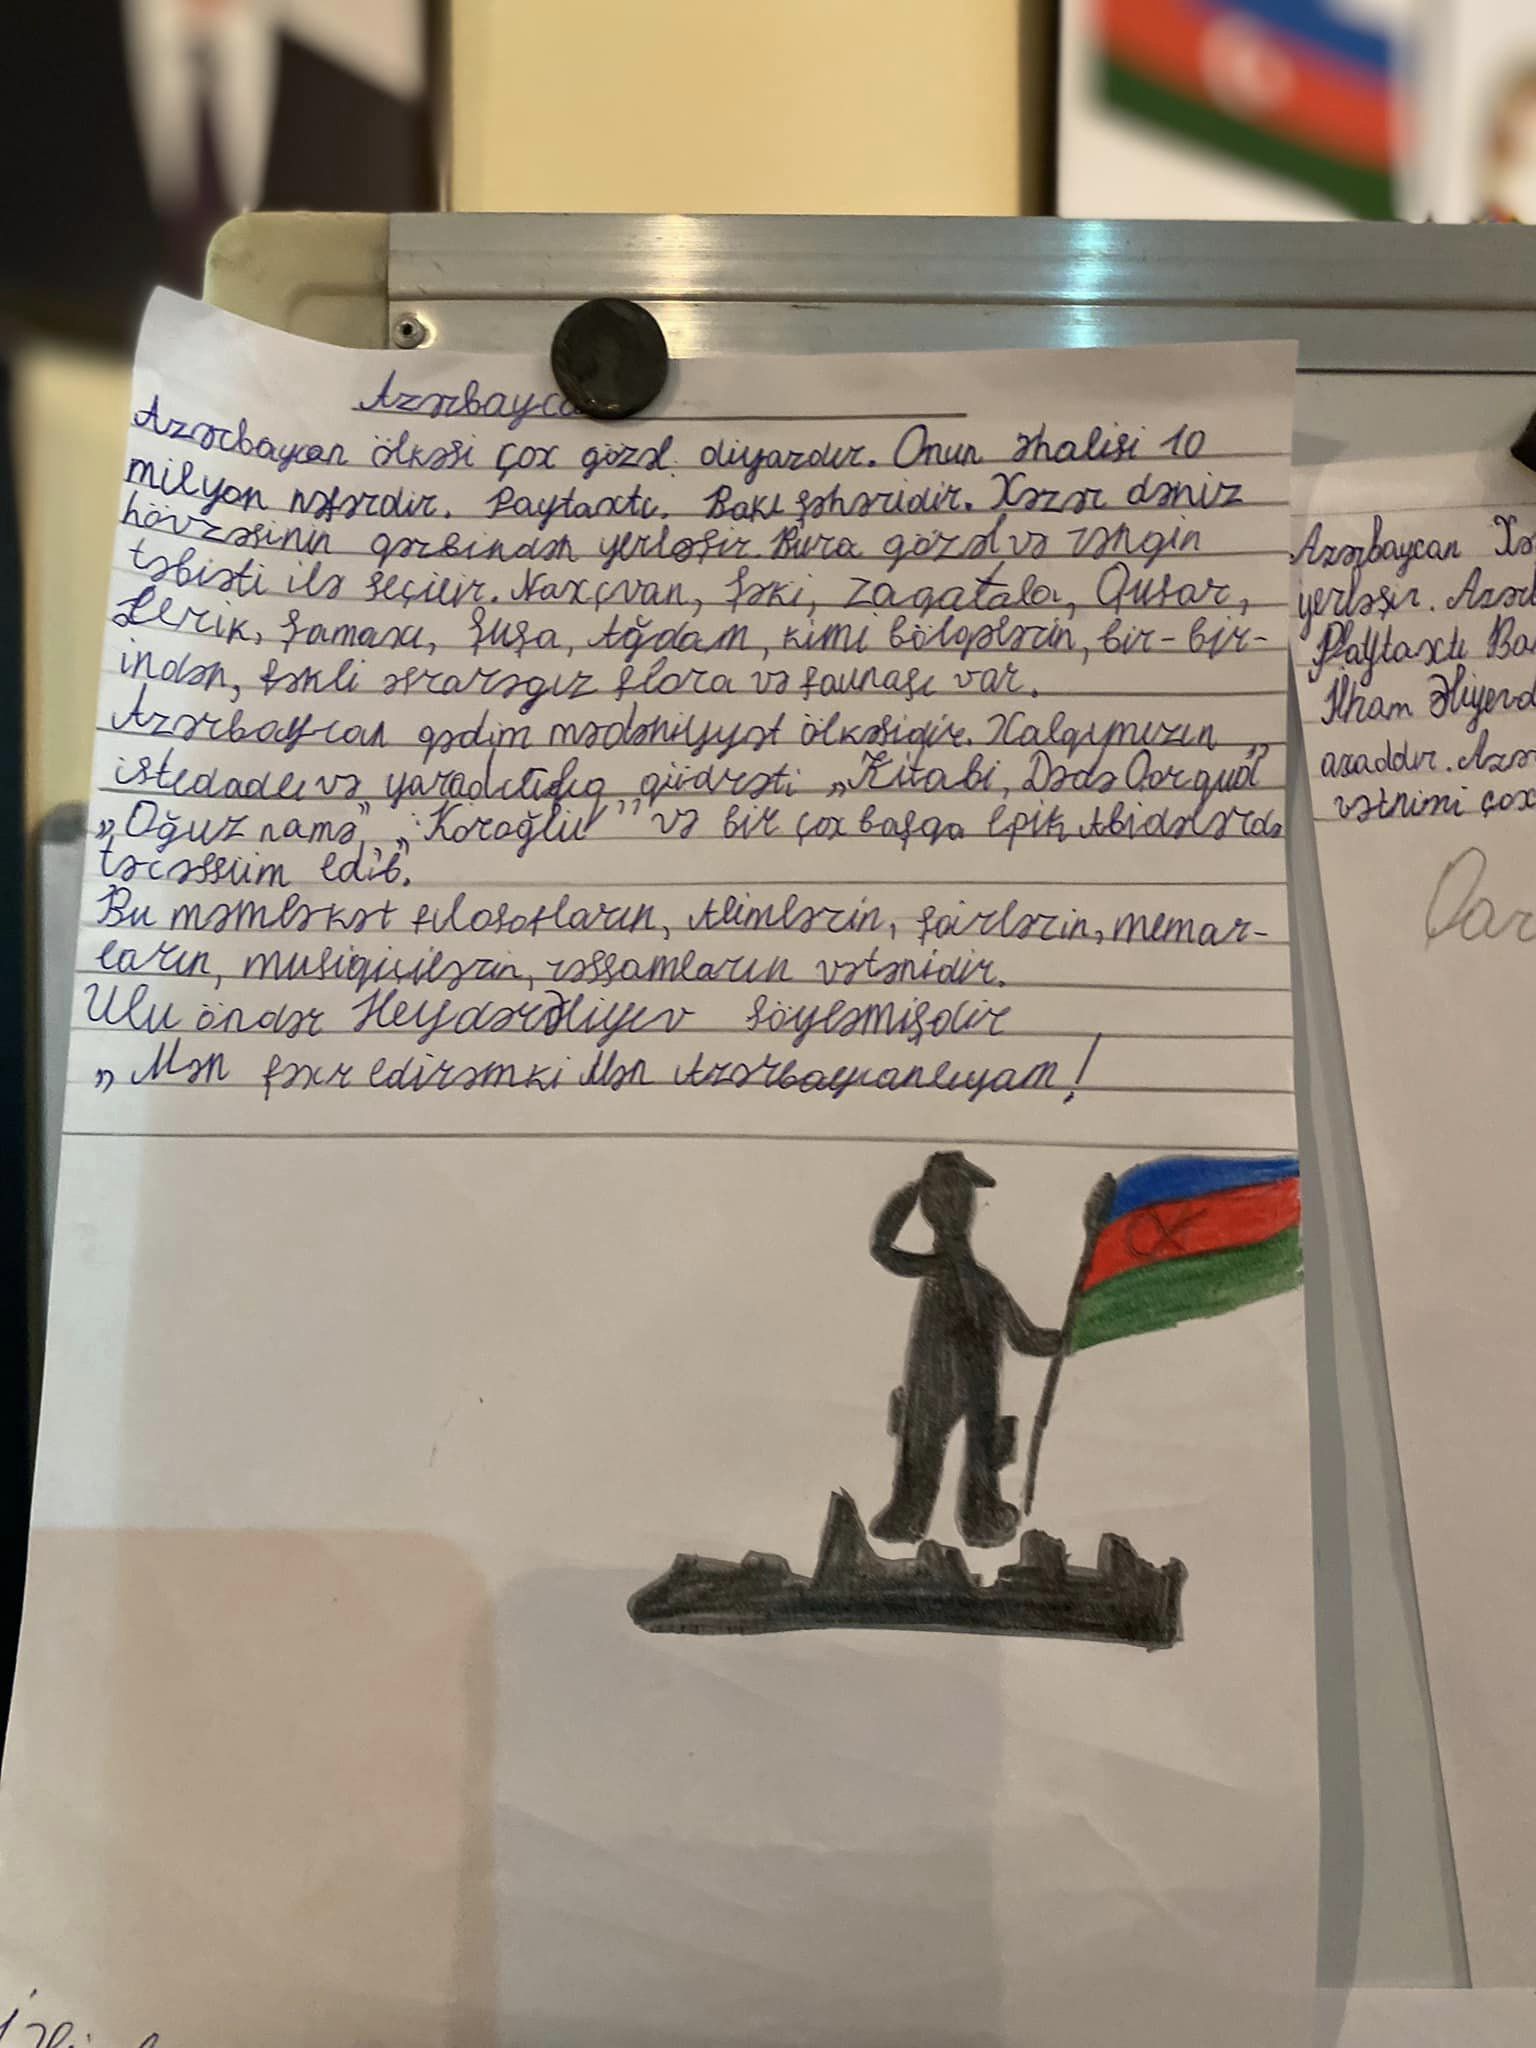 Azərbayca
Azərbaycan ölkəsi çox gözəl diyardır. Onun əhalisi 10
milyon nəfərdir. Paytaxtı. Bakı şəhəridir. Xəzər dəniz
hövzəsinin qərbindən yerləşir. Bura gözəl və zəngin
təbiəti ilə seçilir. Naxçvan, Şəki, Zaqatala, Qusar,
Lerik, Şamaxı, Şuşa, Ağdam, kimi bölgələrin, bir-bir-
indən, fəkli əsrarəgiz flora və faunası var.
Azərbaycan qədim mədəniyyət ölkəsidir. Xalqımızın
istedadı və yaradıcılıq qüdrəti „Kitabi, Dədə Qorqud"
„Oğuz namə" „Koroğlu" və bir çox başqa epik abidələrdə
təcəssüm edib.
Bu məmləkət filosofların, alimlərin, şairlərin, memar-
ların, musiqiçilərin, rəssamların vətənidir.
Ulu öndər Heydər Əliyev söyləmişdir
„Mən fəxr edirəmki Mən Azərbaycanlıyam!
Azərbaycan Xə
yerləşir. Azərb
Paytaxtı Ba
İlham Əliyevd
azaddır. Azə
vətnimi çox
Qar